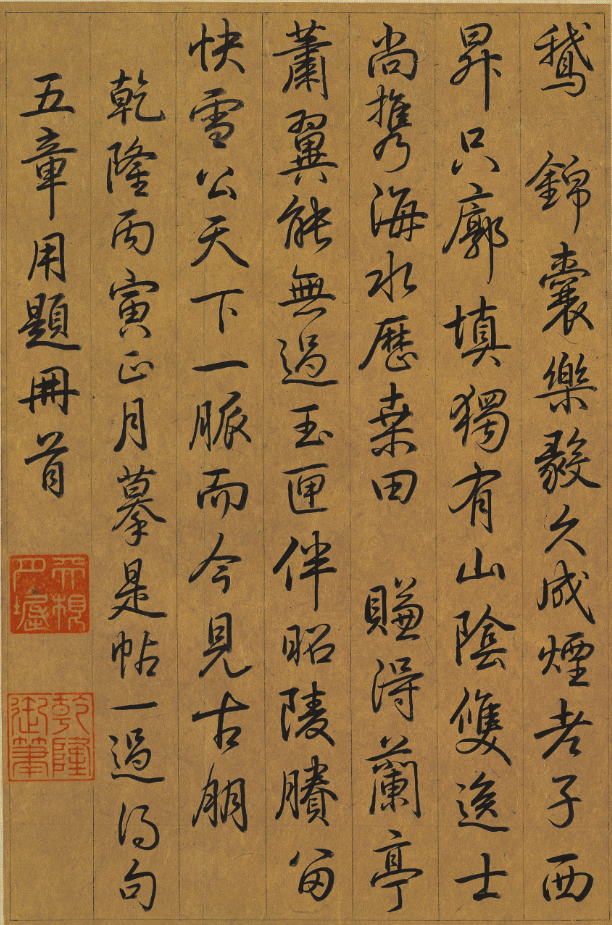 鵝 錦囊樂毅久成煙老子西
昇只廓填獨有山陰雙逸士
尚携海水歷桑田 賺得蘭亭
蕭翼能無過玉匣伴昭陵賸留
快雪公天下一脈而今見古朋
乾隆丙寅正月摹是帖一過得句
五章用題冊首
乾隆御筆